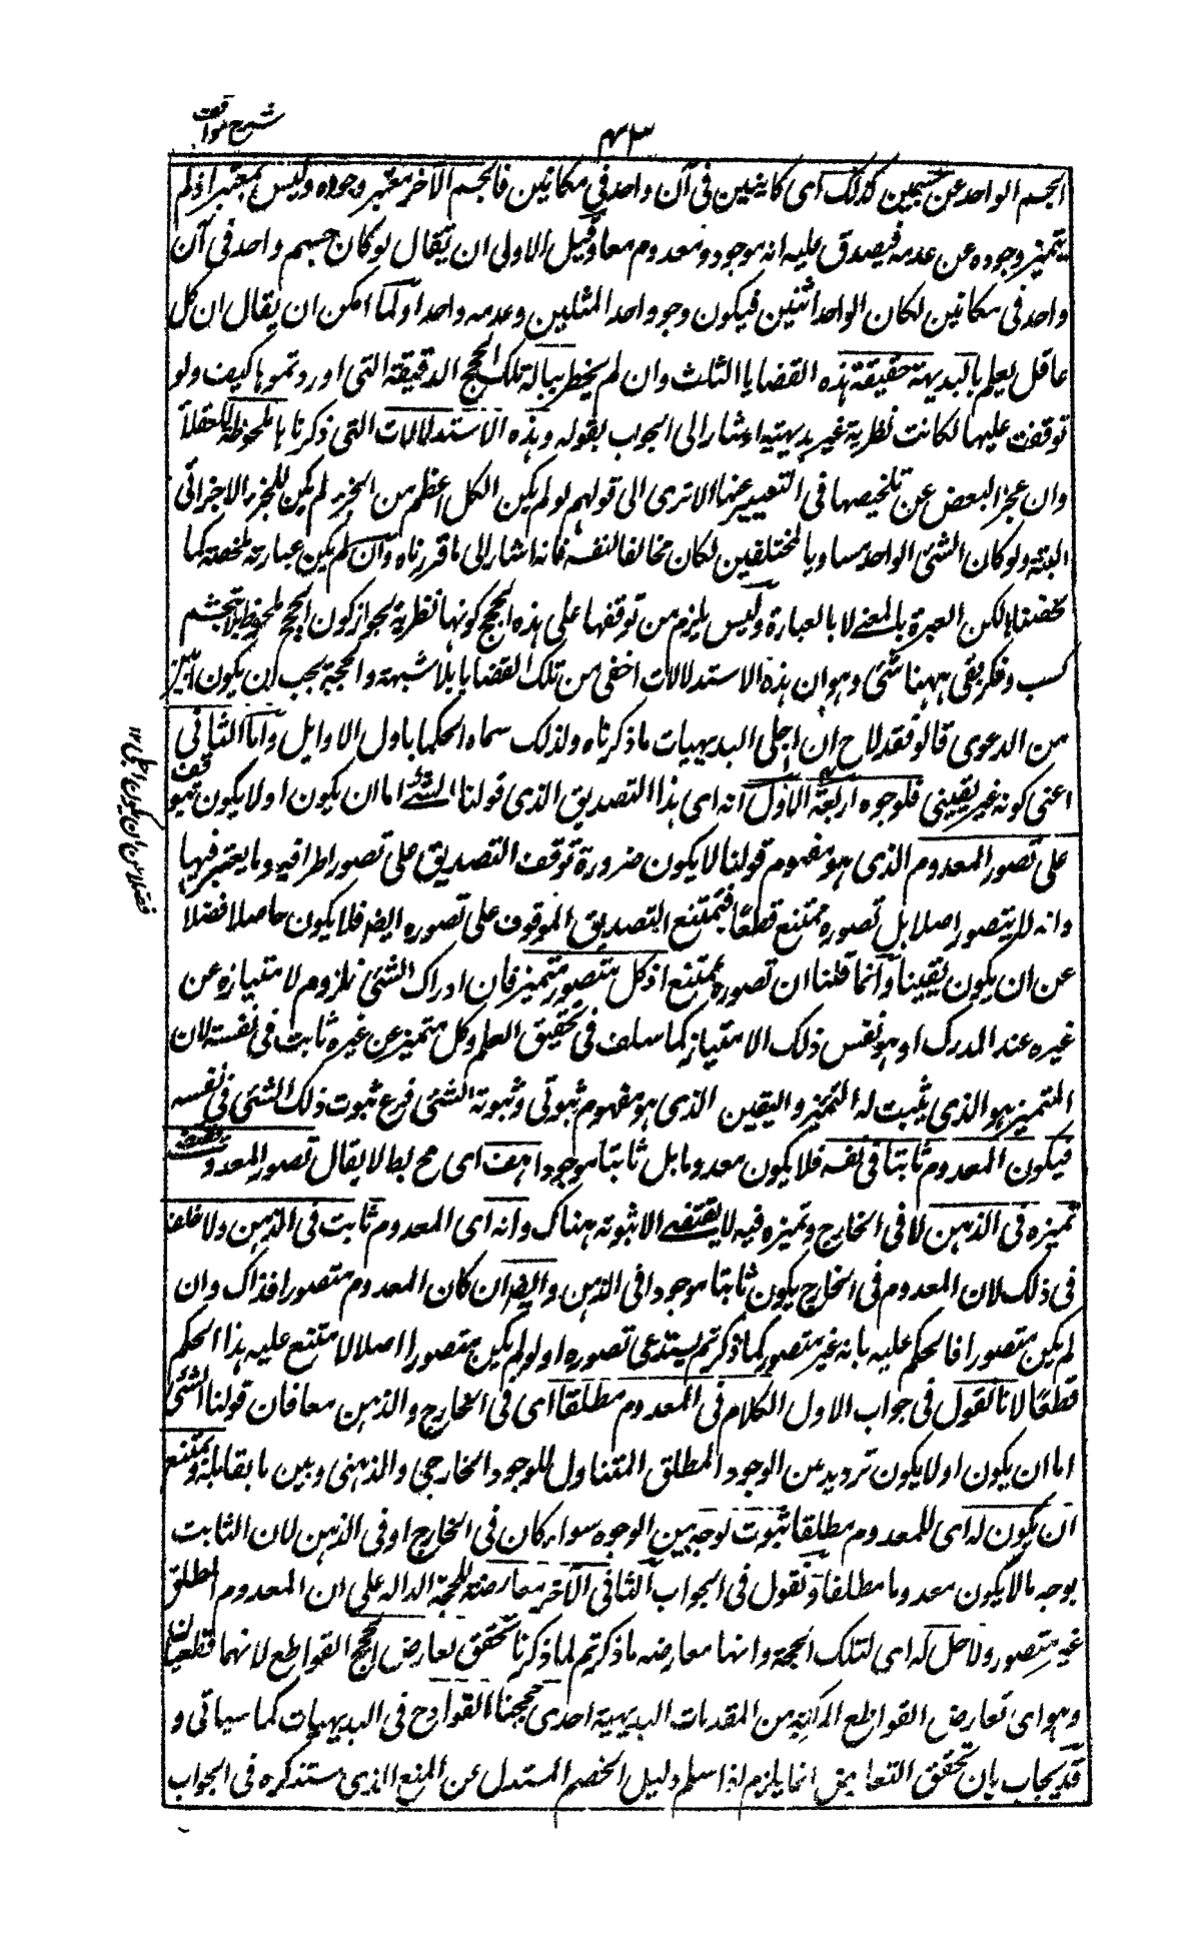 شرح مواقف
٤٣
الجسم الواحد عن جسمين كذلك اى كاينين فى آن واحد فى مكانين فالجسم الآخر معتبر وجوده وليس بمعتبر اذ لم
يتميز وجوده عن عدمه فيصدق عليه انه موجود ومعدوم معا وقيل الاولى ان يقال لو كان جسم واحد فى آن
واحد فى مكانين لكان الواحد اثنين فيكون وجود احد المثلين وعدمه واحدا ولما امكن ان يقال ان كل
عاقل يعلم بالبديهة حقيقة هذه القضايا الثلث وان لم يخطر بباله تلك الحجج الدقيقة التى اوردتموها كيف ولو
توقفت عليها لكانت نظرية غير بديهية اشار الى الجواب بقوله وهذه الاستدلالات التى ذكرناها ملحوظة للعقلاء
وان عجز البعض عن تلخيصها فى التعبير عنها الا ترى الى قولهم لو لم يكن الكل اعظم من الجزء لم يكن للجزء الاخر اثر
البتة ولو كان الشئ الواحد مساويا لمختلفين لكان مخالفا لنفسه فانه اشار الى ما قررناه وان لم يكن عبارته ملخصة كما
لخصناها لكن العبرة بالمعنى لا بالعبارة وليس يلزم من توقفها على هذه الحجج كونها نظرية لجواز كون الحجج ملحوظة بلا تجشم
كسب وفكر بقى ههنا شئ وهو ان هذه الاستدلالات اخفى من تلك القضايا بلا شبهة والحجة يجب ان يكون ابين
من الدعوى قالوا فقد لاح ان اجلى البديهيات ما ذكرناه ولذلك سماه الحكما باول الاوايل واما الثانى
اعنى كونه غير يقينى فلوجوه اربعة الاول انه اى هذا التصديق الذى قولنا الشئ اما ان يكون او لا يكون يتوقف
على تصور المعدوم الذى هو مفهوم قولنا لا يكون ضرورة توقف التصديق على تصور اطرافه وما يعتبر فيها
وانه لا يتصور اصلا بل تصوره ممتنع قطعا فيمتنع التصديق الموقوف على تصوره ايضا فلا يكون حاصلا فضلا
عن ان يكون يقينا وانما قلنا ان تصوره ممتنع اذ كل متصور متميز فان ادراك الشئ ملزوم لامتيازه عن
غيره عند المدرك او هو نفس ذلك الامتياز كما سلف فى تحقيق العلم وكل متميز عن غيره ثابت فى نفسه لان
المتميز هو الذى يثبت له التميز والتعين الذى هو مفهوم ثبوتى وثبوته للشئ فرع ثبوت ذلك الشئ فى نفسه
فيكون المعدوم ثابتا فى نفسه فلا يكون معدوما بل ثابتا موجودا هف اى مح بط لا يقال تصور المعدوم يقتضى
تميزه فى الذهن لا فى الخارج وتميزه فيه لا يقتضى الا ثبوته هناك وانه اى المعدوم ثابت فى الذهن ولا خلف
فى ذلك لان المعدوم فى الخارج يكون ثابتا موجودا فى الذهن وايضا ان كان المعدوم متصورا فذاك وان
لم يكن متصورا فالحكم عليه بانه غير متصور كما ذكرتم يستدعى تصوره اذ لو لم يكن متصورا اصلا لامتنع عليه هذا الحكم
قطعا لانا نقول فى جواب الاول الكلام فى المعدوم مطلقا اى فى الخارج والذهن معا فان قولنا الشئ
اما ان يكون او لا يكون ترديد عن الوجود المطلق المتناول للوجود الخارجى والذهنى وبين ما يقابله ويمتنع
ان يكون له اى للمعدوم مطلقا ثبوت لوجه من الوجوه سواء كان فى الخارج او فى الذهن لان الثابت
بوجه ما لا يكون معدوما مطلقا ونقول فى الجواب الثانى الآخر معارضة للحجة الدالة على ان المعدوم المطلق
غير متصور ولا حل له اى لتلك الحجة وانها معارضه ما ذكرتم لما ذكرنا تحقق تعارض الحجج القواطع لانهما قطعيتان
وهو اى تعارض القواطع المركبة من المقدمات البديهية احدى حججنا القوادح فى البديهيات كما سياتى و
قد يجاب بان تحقق التعارض انما يلزم اذا سلم دليل الخصم المستدل عن المنع الذى ستذكره فى الجواب
فضلا من ان يكون اجلى ١٢